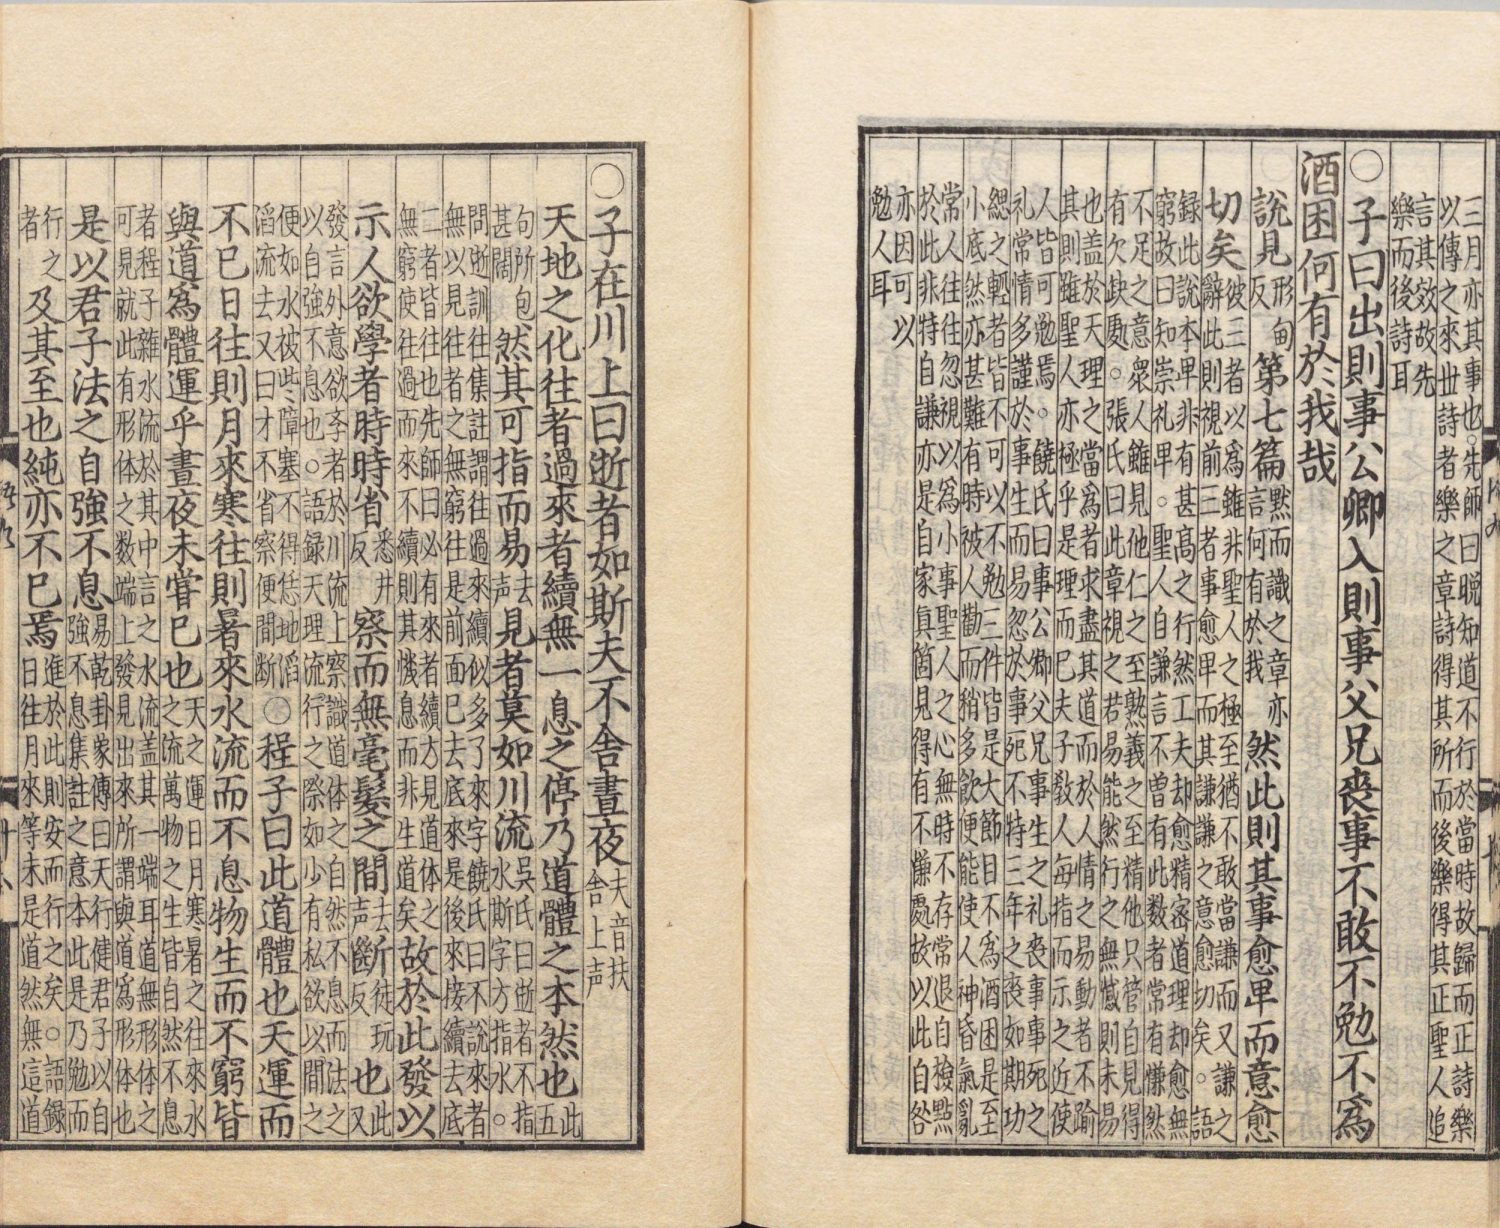 三月亦其事也。先師曰晩知道不行於當時故歸而正詩樂
以傳之來世詩者樂之章詩得其所而後樂得其正聖人追
言其效故先
樂而後詩耳
○子曰出則事公卿入則事父兄喪事不敢不勉不爲
酒困何有於我哉
說見形甸反第七篇默而識之章亦言何有於我然此則其事愈卑而意愈
切矣彼三者以爲雖非聖人之極至猶不敢當謙而又謙之辭此則視前三者事愈卑而其謙謙之意愈切矣。語
録此說本卑非有甚髙之行然工夫却愈精密道理却愈無
窮故曰知崇礼卑。聖人自謙言不曽有此数者常有慊然
不足之意衆人雖見他仁之至熟義之至精他只管自見得
有欠缺處。張氏曰此章視之若易能然行之無憾則未易
也盖於天理之當爲者求盡其道而於人情之易動者不踰
其則雖聖人亦極乎是理而已夫子敎人每指而示之近使
人皆可勉焉。饒氏曰事公卿父兄事生之礼喪事事死之
礼常情多謹於事生而易忽於事死不特三年之喪如期功
緦之輕者皆不可以不勉三件皆是大節目不爲酒困是至
小底然亦甚難有時被人勸而稍多飲便能使人神昏氣亂
常人往往忽視以爲小事聖人之心無時不存常退自撿點
於此非特自謙亦是自家眞箇見得有不慊處故以此自咎
亦因可以
勉人耳
○子在川上曰逝者如斯夫不舍晝夜夫音扶舍上声
天地之化往者過來者續無一息之停乃道體之本然也此五
句所包甚闊然其可指而易去声見者莫如川流吳氏曰逝者不指水斯字方指水。
問逝訓往集註謂往過來續似多了來字饒氏曰不說來者
無以見往者之無窮往是前面已去底來是後來接續去底
二者皆往也先師曰必有來者續方見道体之無窮使往過而來不續則其機息而非生道矣故於此發以
示人欲學者時時省悉井反察而無毫髮之間去声斷徒玩反也此又
發言外意欲李者於川流上察識道体之自然不息而法之
以自強不息也。語録天理流行之際如少有私欲以間之
便如水被些障塞不得恁地滔滔流去又曰才不省察便間斷○程子曰此道體也天運而
不已日往則月來寒往則暑來水流而不息物生而不窮皆
與道爲體運乎晝夜未嘗已也天之運日月寒暑之往來水之流萬物之生皆自然不息
者程子雜水流於其中言之水流盖其一端耳道無形体之
可見就此有形体之数端上發見出來所謂與道爲形体也
是以君子法之自強不息易乾卦象傳曰天行健君子以自強不息集註之意本此是乃勉而
行之者及其至也純亦不已焉進於此則安而行之矣。語録日往月來等未是道然無這道